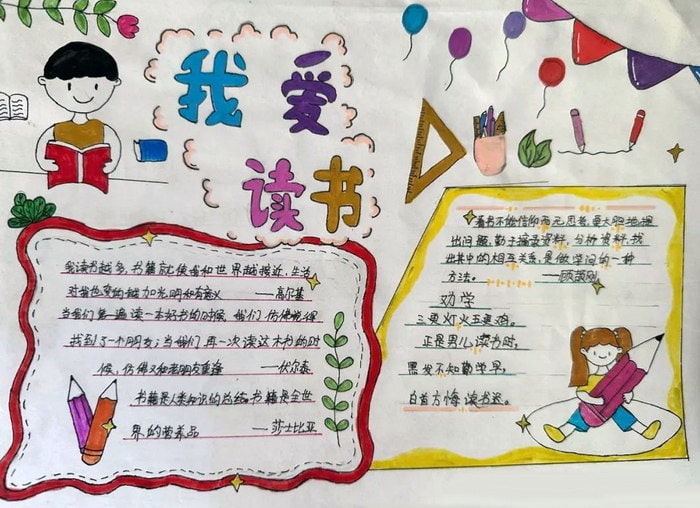 我爱
读书
我读书越多,书籍就使我和世界越接近,生活
对我也变的越加光明和有意义 ——高尔基
当我们第一遍读一本好书的时候,我们仿佛觉得
找到了一个朋友;当我们再一次读这本书的时
候,仿佛又和老朋友重逢 ——伏尔泰
书籍是人类知识的总结,书籍是全世
界的营养品 ——莎士比亚
看书不能信仰而无思考,要大胆地提
出问题,勤于摘录资料,分析资料,找
出其中的相互关系,是做学问的一种
方法。——顾颉刚
劝学
三更灯火五更鸡。
正是男儿读书时,
黑发不知勤学早,
白首方悔读书迟。